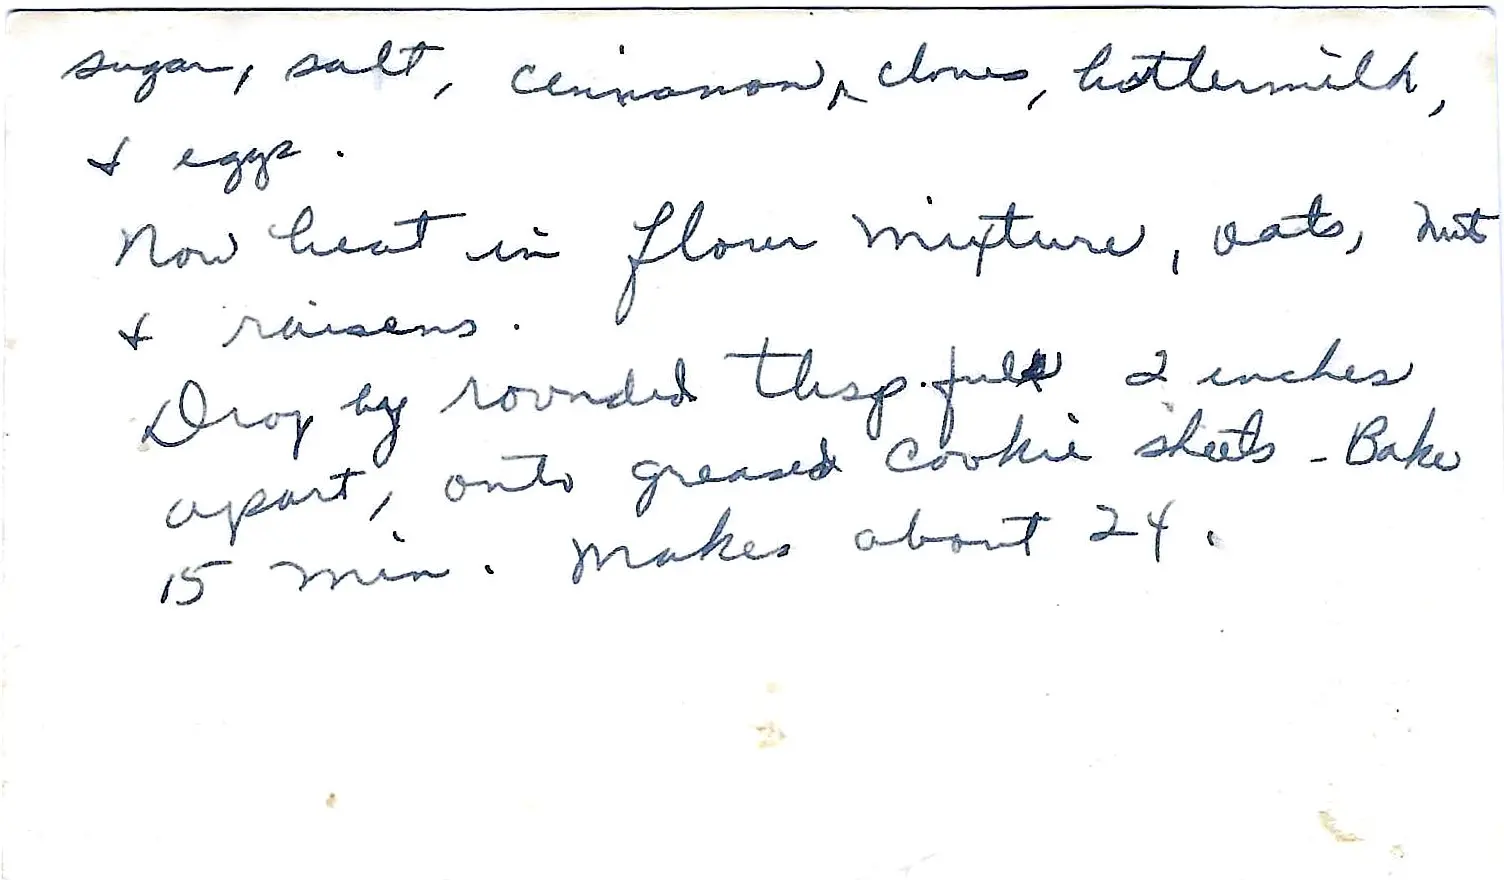 sugar, salt, cinnamon, cloves, buttermilk,
& eggs.
Now beat in flour mixture, oats, nut
& raisens.
Drop by rounded tbsp. full 2 inches
apart, onto greased cookie sheets - Bake
15 min. Makes about 24.